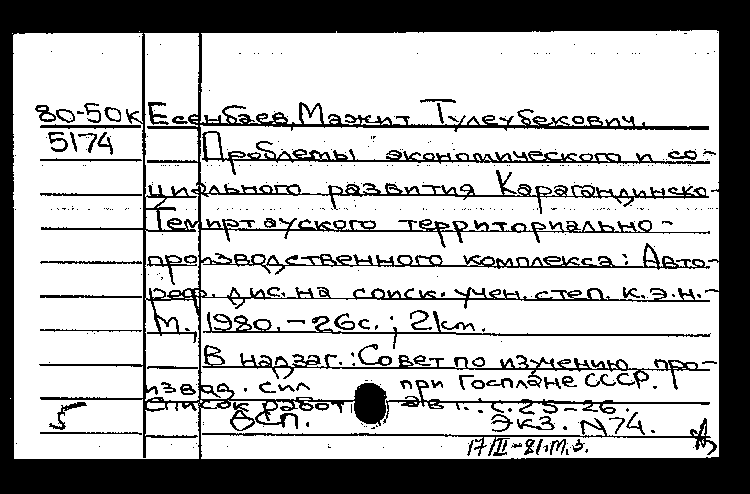 80-50к Есенбаев, Мажит Тулеубекович.
5174 Проблемы экономического и со-
циального развития Карагандинско-
Темиртауского территориально-
производственного комплекса: Авто-
реф. дис. на соиск. учен. степ. к.э.н.-
М., 1980. - 26с.; 21см.
В надзаг.: Совет по изучению про-
извод. сил при Госплане СССР.
Список работ авт.: с. 25-26.
5 ДСП. Экз. N74.
17/III-81.М.З.